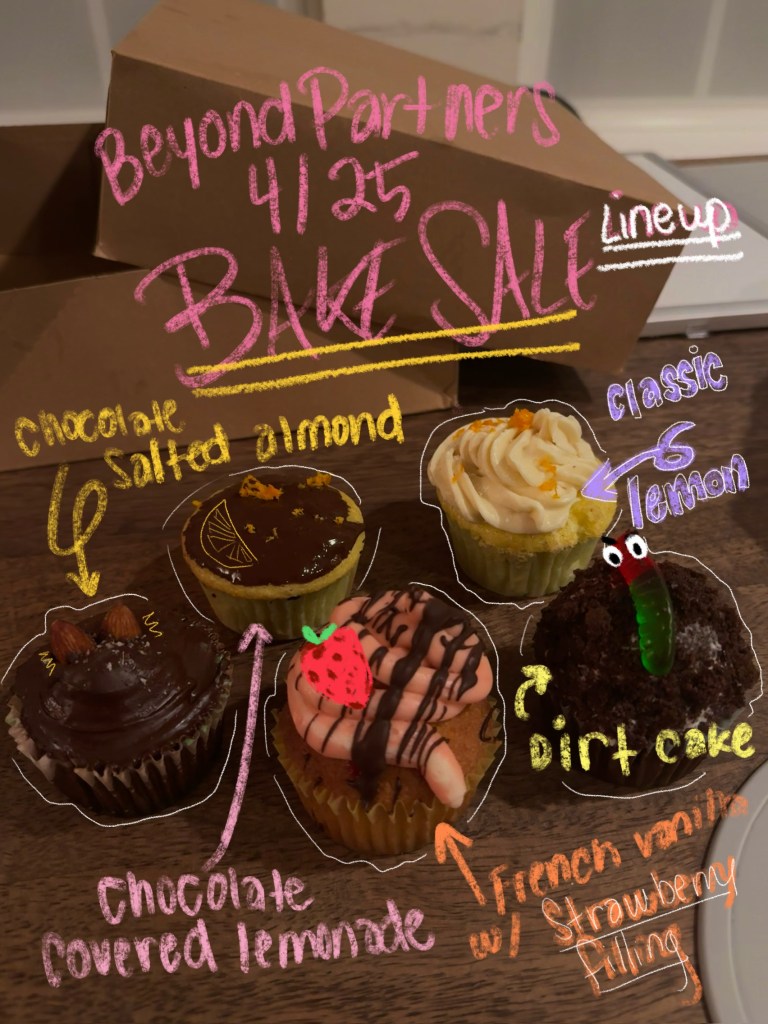 Beyond Partners
4/25
BAKE SALE
Lineup
Classic
lemon
Chocolate
Salted almond
Dirt cake
French vanilla
w/ Strawberry
filling
Chocolate
Covered lemonade